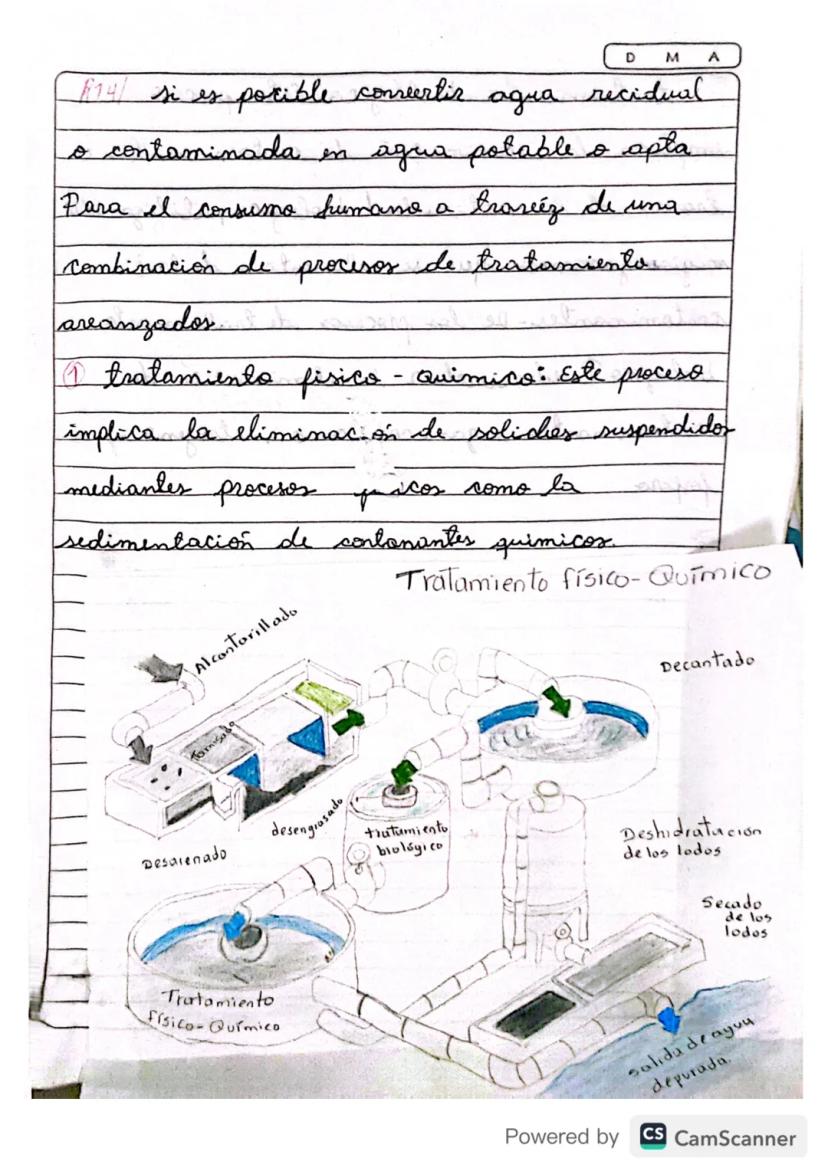 D M A
R14/ si es pocible convertir agua recidual
o contaminada en agua potable o apta
Para el consumo humano a travéz de una
combinación de procesos de tratamiento
avanzados
① tratamiento fisico - quimico: Este proceso
implica la eliminación de soliches suspendidos
mediantes procesos como la
sedimentación de contanantes quimicos.
Tratamiento físico-Químico
Alcantarillado
Decantado
Tamisado
desengrasado
Desarenado
tratamiento
biológico
Deshidratación
de los lodos
Secado
de los
lodos
Tratamiento
físico-Químico
salida de agua
depurada
Powered by CS CamScanner